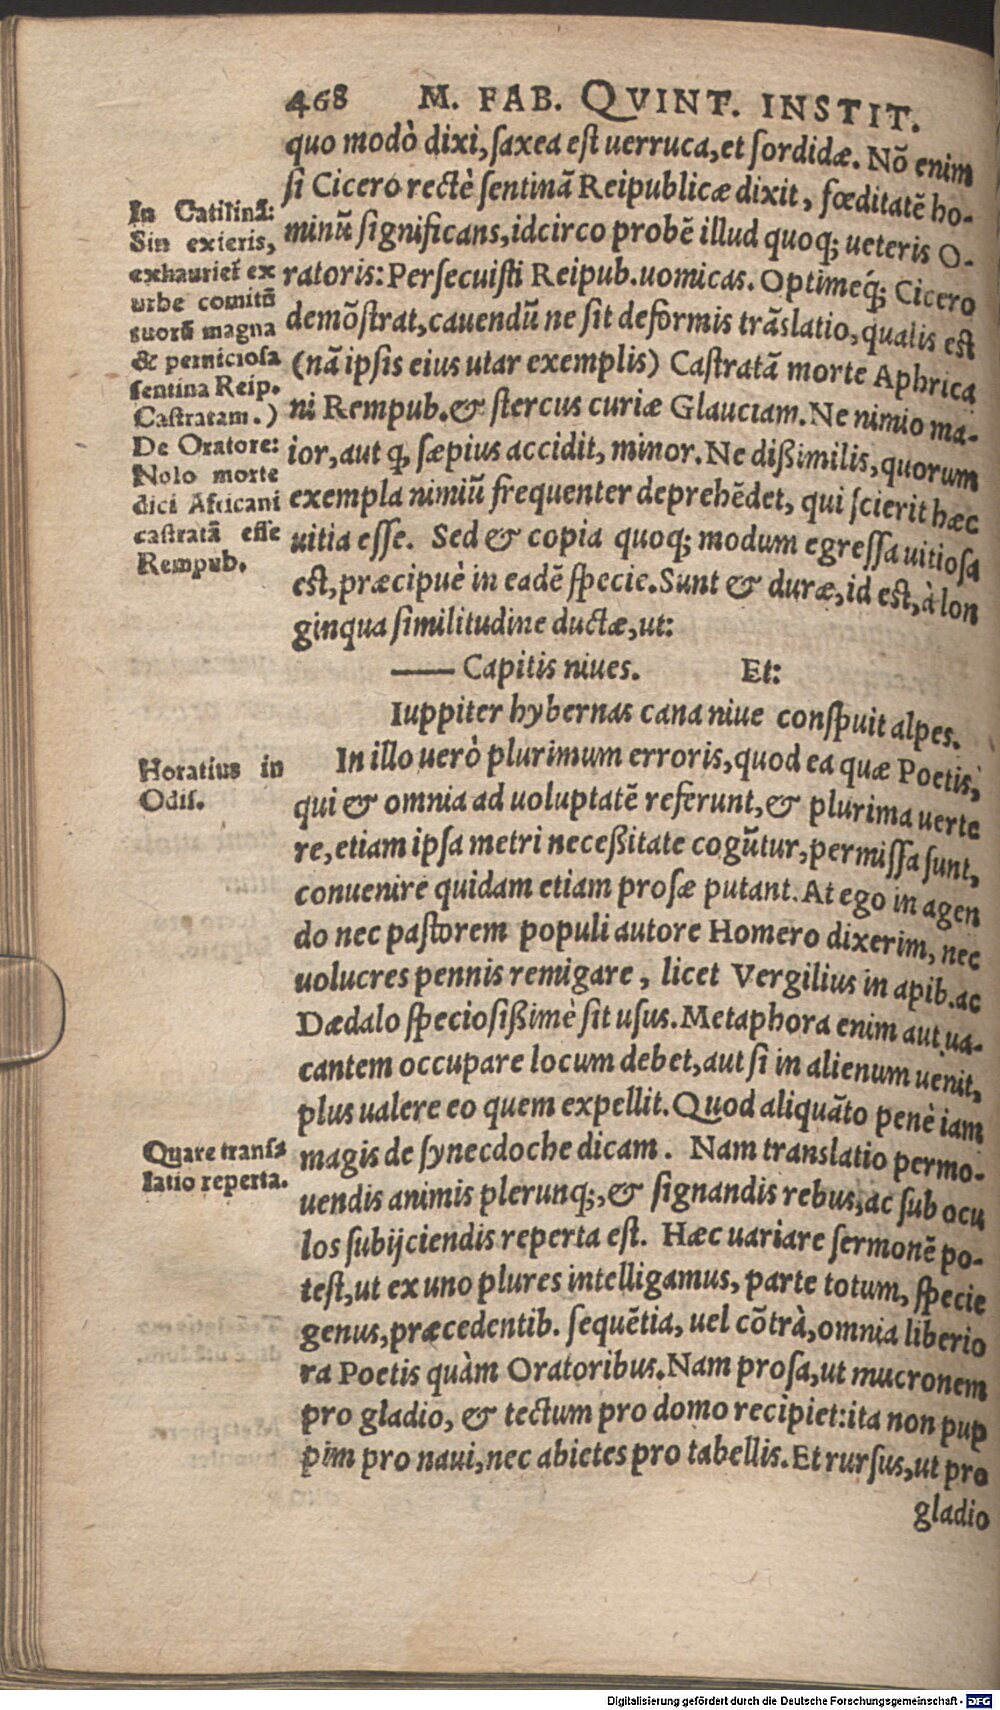 468 M. FAB. QVINT. INSTIT.
quo modò dixi, saxea est uerruca, et sordidæ. Nõ enim
si Cicero rectè sentinã Reipublicæ dixit, fœditatẽ ho-
minũ significans, idcirco probẽ illud quoq; ueteris O-
ratoris: Persecuisti Reipub. uomicas. Optimeq́; Cicero
demõstrat, cauendũ ne sit deformis trãslatio, qualis est
(nã ipsis eius utar exemplis) Castratã morte Aphrica
ni Rempub. & stercus curiæ Glauciam. Ne nimio ma-
ior, aut q, sæpius accidit, minor. Ne dißimilis, quorum
exempla nimiũ frequenter deprehẽdet, qui scierit hæc
uitia esse. Sed & copia quoq; modum egressa uitiosa
est, præcipuè in eadẽ specie. Sunt & duræ, id est, à lon
ginqua similitudine ductæ, ut:
—— Capitis niues. Et:
Iuppiter hybernas cana niue conspuit alpes.
In illo uerò plurimum erroris, quod ea quæ Poetis,
qui & omnia ad uoluptatẽ referunt, & plurima uerte
re, etiam ipsa metri neceßitate cogũtur, permissa sunt,
conuenire quidam etiam prosæ putant. At ego in agen
do nec pastorem populi autore Homero dixerim, nec
uolucres pennis remigare, licet Vergilius in apib. ac
Dædalo speciosißimè sit usus. Metaphora enim aut ua-
cantem occupare locum debet, aut si in alienum uenit,
plus ualere eo quem expellit. Quod aliquãto penè iam
magis de synecdoche dicam. Nam translatio permo-
uendis animis plerunq;, & signandis rebus, ac sub ocu
los subijciendis reperta est. Hæc uariare sermonẽ po-
test, ut ex uno plures intelligamus, parte totum, specie
genus, præcedentib. sequẽtia, uel cõtrà, omnia liberio
ra Poetis quàm Oratoribus. Nam prosa, ut mucronem
pro gladio, & tectum pro domo recipiet: ita non pup
pim pro naui, nec abietes pro tabellis. Et rursus, ut pro
gladio
In Catilinã:
Sin exieris,
exhauriet ex
urbe comitũ
suorũ magna
& perniciosa
sentina Reip.
Castratam.)
De Oratore:
Nolo morte
dici Africani
castratã esse
Rempub.
Horatius in
Odis.
Quare trans
latio reperta.
Digitalisierung gefördert durch die Deutsche Forschungsgemeinschaft - DFG